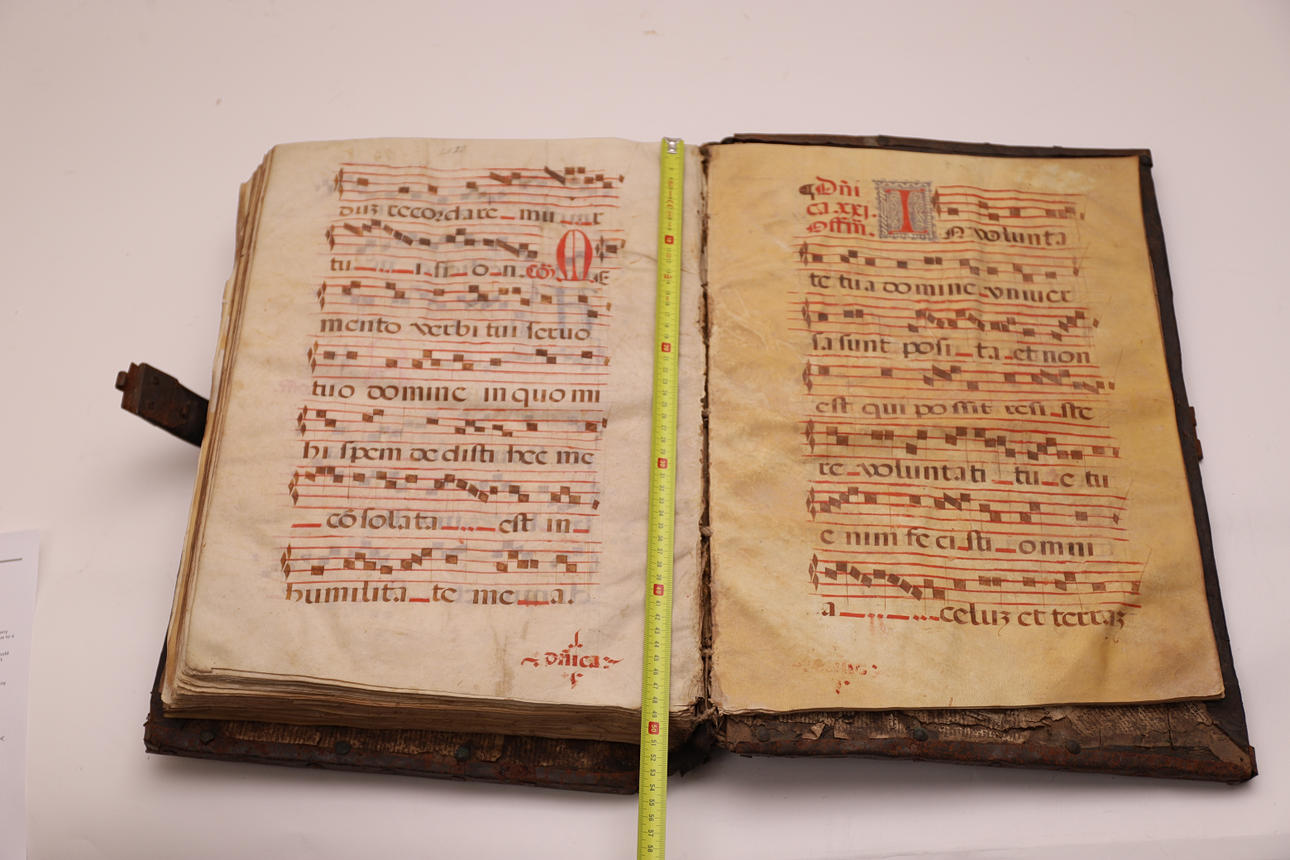 duz recordare mur
tu i. si o n. cō M E
mento verbi tui seruo
tuo domine in quo mi
hi spem dedisti hec me
cōsolata est in
humilita te me a.
dn̄ica
Dn̄i
ca xxj.
Offm̄. I
N volunta
te tua domine vniuer
sa sunt posi ta et non
est qui possit resi ste
re voluntati tu e tu
e nim fecisti omni
a celuz et terraz